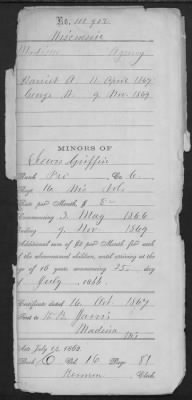 No. 112,902
Wisconsin
Madison Agency
Daniel A. 11 April 1867
George A. 9 Nov. 1869
MINORS OF
Lewis Griffin
Rank Pri Co. G
Regt. 16 Wis Vols.
Rate per Month, $ 8
Commencing 3 May 1866
Ending 9 Nov 1869
Additional sum of $2 per Month for each
of the abovenamed children, until arriving at the
age of 16 years commencing 25 day
of July, 1866.
Certificate dated 16 Oct. 1867
Sent to
Madison
Wis
Act July 14, 1862.
Book Vol. 16 Page 81
Clerk.